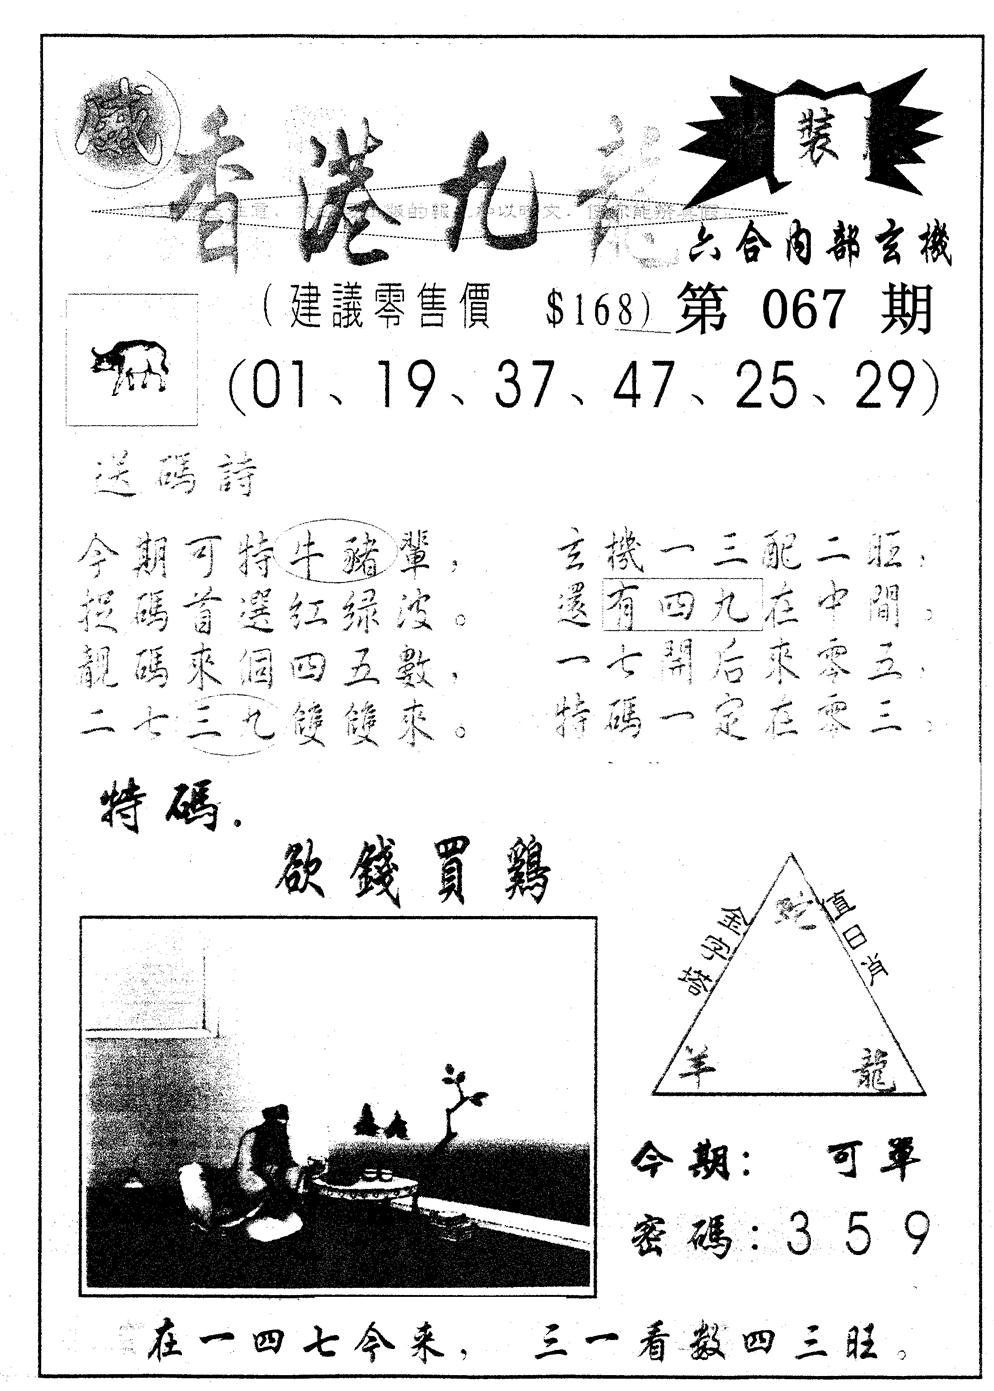 香港九龍
裝
六合内部玄機
(建議零售價 $168) 第 067 期
(01、19、37、47、25、29)
送碼詩
今期可特牛豬輩，
捉碼首選红绿波。
靚碼來個四五數，
二七三九雙雙來。
玄機一三配二旺，
還有四九在中間。
一七開后來零五，
特碼一定在零三。
特碼.
欲錢買鷄
金字塔
蛇
值日肖
羊
龍
今期： 可單
密碼：3 5 9
在一四七今来， 三一看数四三旺。